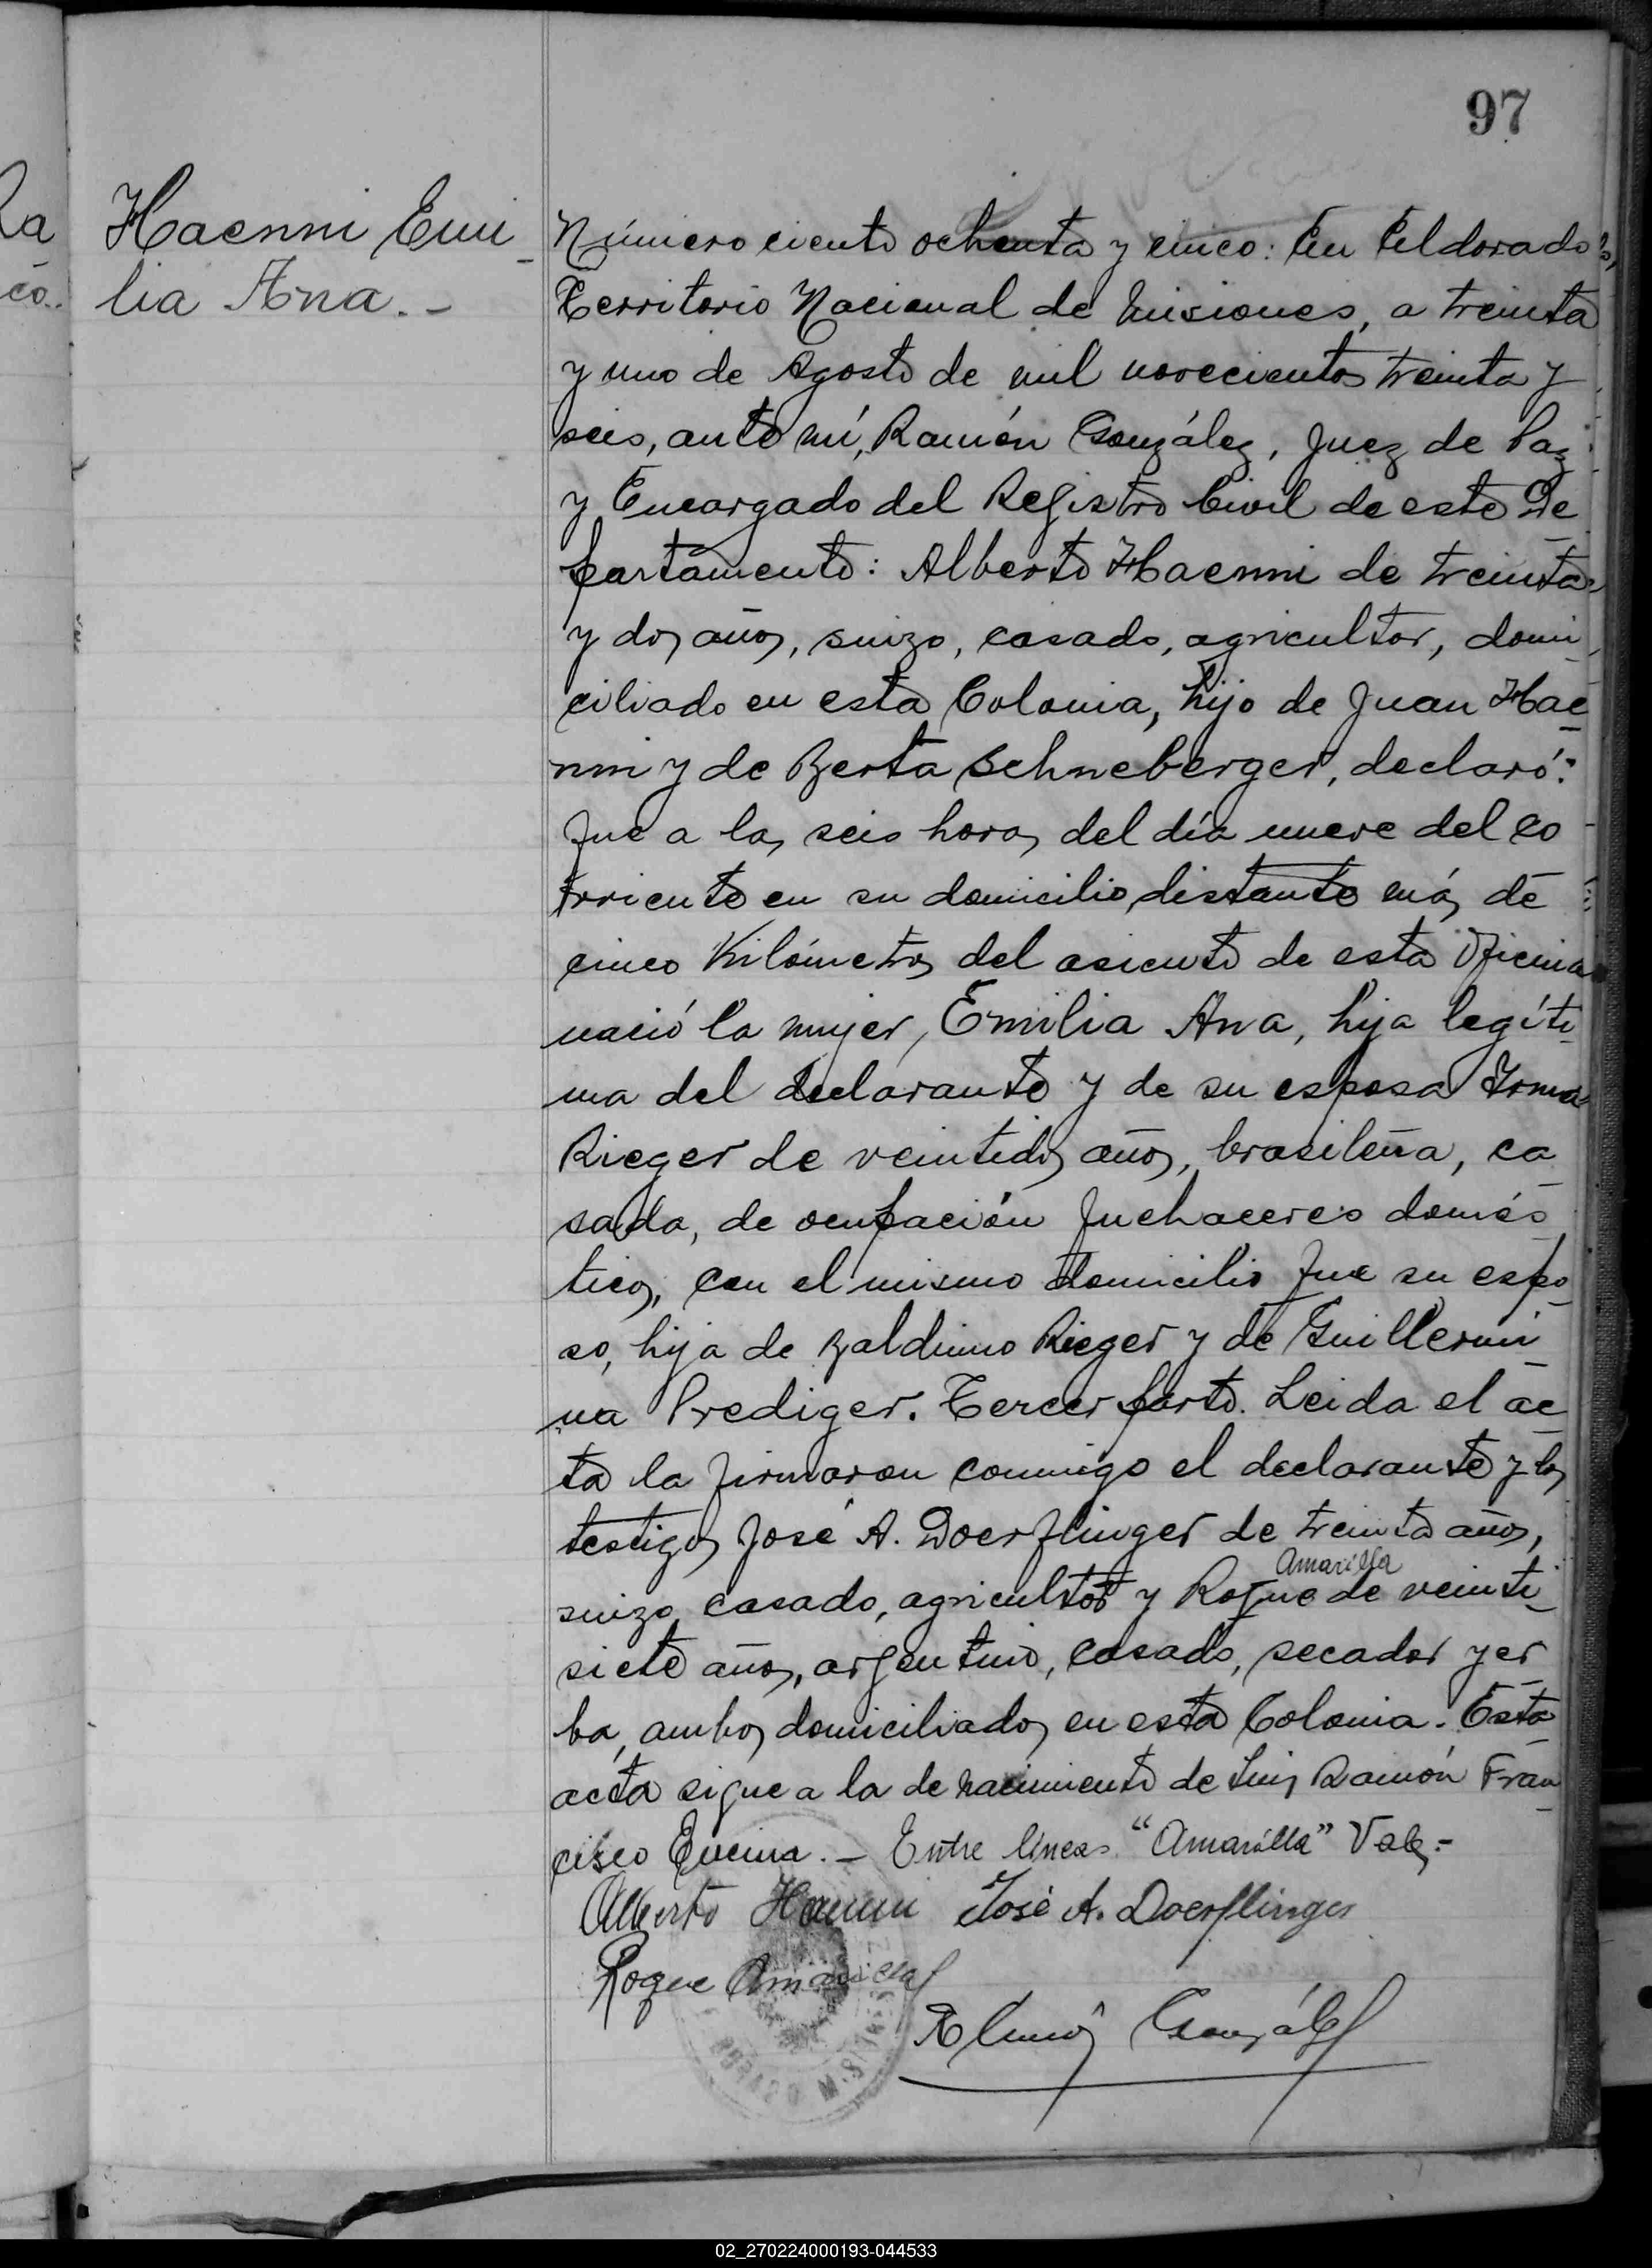 97
Haenni Emi-
lia Ana.-
Número ciento ochenta y cinco: En Eldorado,
Territorio Nacional de Misiones, a treinta
y uno de Agosto de mil novecientos treinta y
seis, ante mí, Ramón González, Juez de Paz
y Encargado del Registro Civil de este De-
partamento: Alberto Haenni de treinta
y dos años, suizo, casado, agricultor, domi-
ciliado en esta Colonia, hijo de Juan Hae-
nni y de Berta Schneberger, declaró:
Que a las seis horas del día nueve del co-
rriente en su domicilio, distante más de
cinco Kilómetros del asiento de esta Oficina
nació la mujer, Emilia Ana, hija legíti-
ma del declarante y de su esposa Irma
Rieger de veintidos años, brasileña, ca-
sada, de ocupación quehaceres domés-
ticos, con el mismo domicilio que su espo-
so, hija de Baldino Rieger y de Guillermi-
na Prediger. Tercer parto. Leida el ac-
ta la firmaron conmigo el declarante y los
testigos José A. Doerflinger de treinta años,
Amarilla
suizo, casado, agricultor y Roque de veinti-
siete años, argentino, casado, secador yer-
ba, ambos domiciliados en esta Colonia. Esta
acta sigue a la de nacimiento de Luis Ramón Fran-
cisco Encina.- Entre líneas "Amarilla" Vale.-
Alberto Haenni José A. Doerflinger
Roque Amarilla
Ramón González
02_270224000193-044533